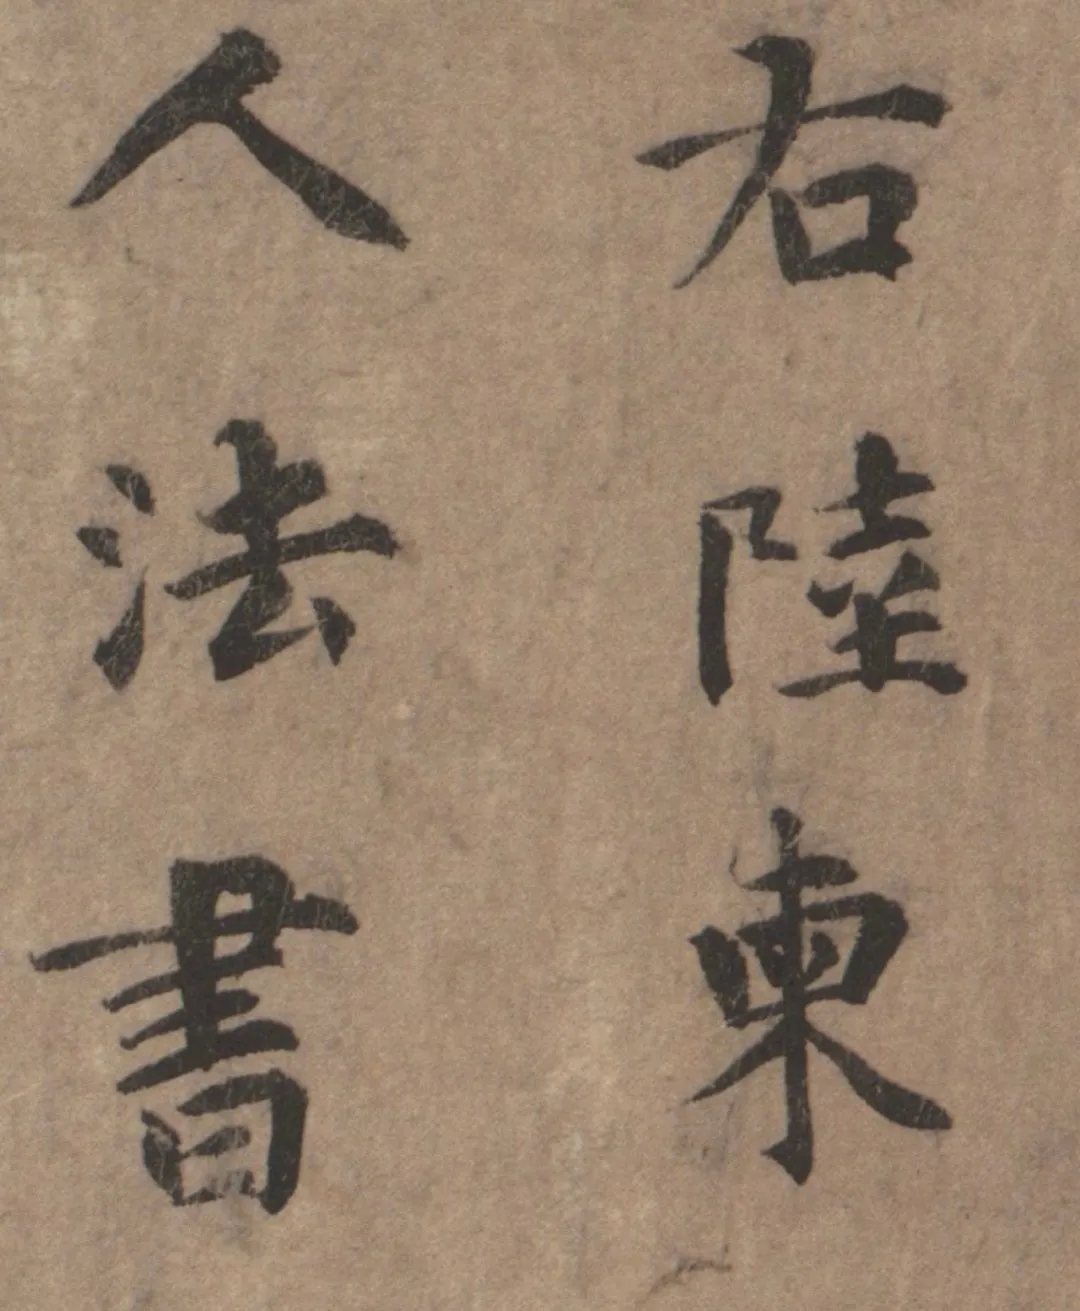 右陸柬
人法書